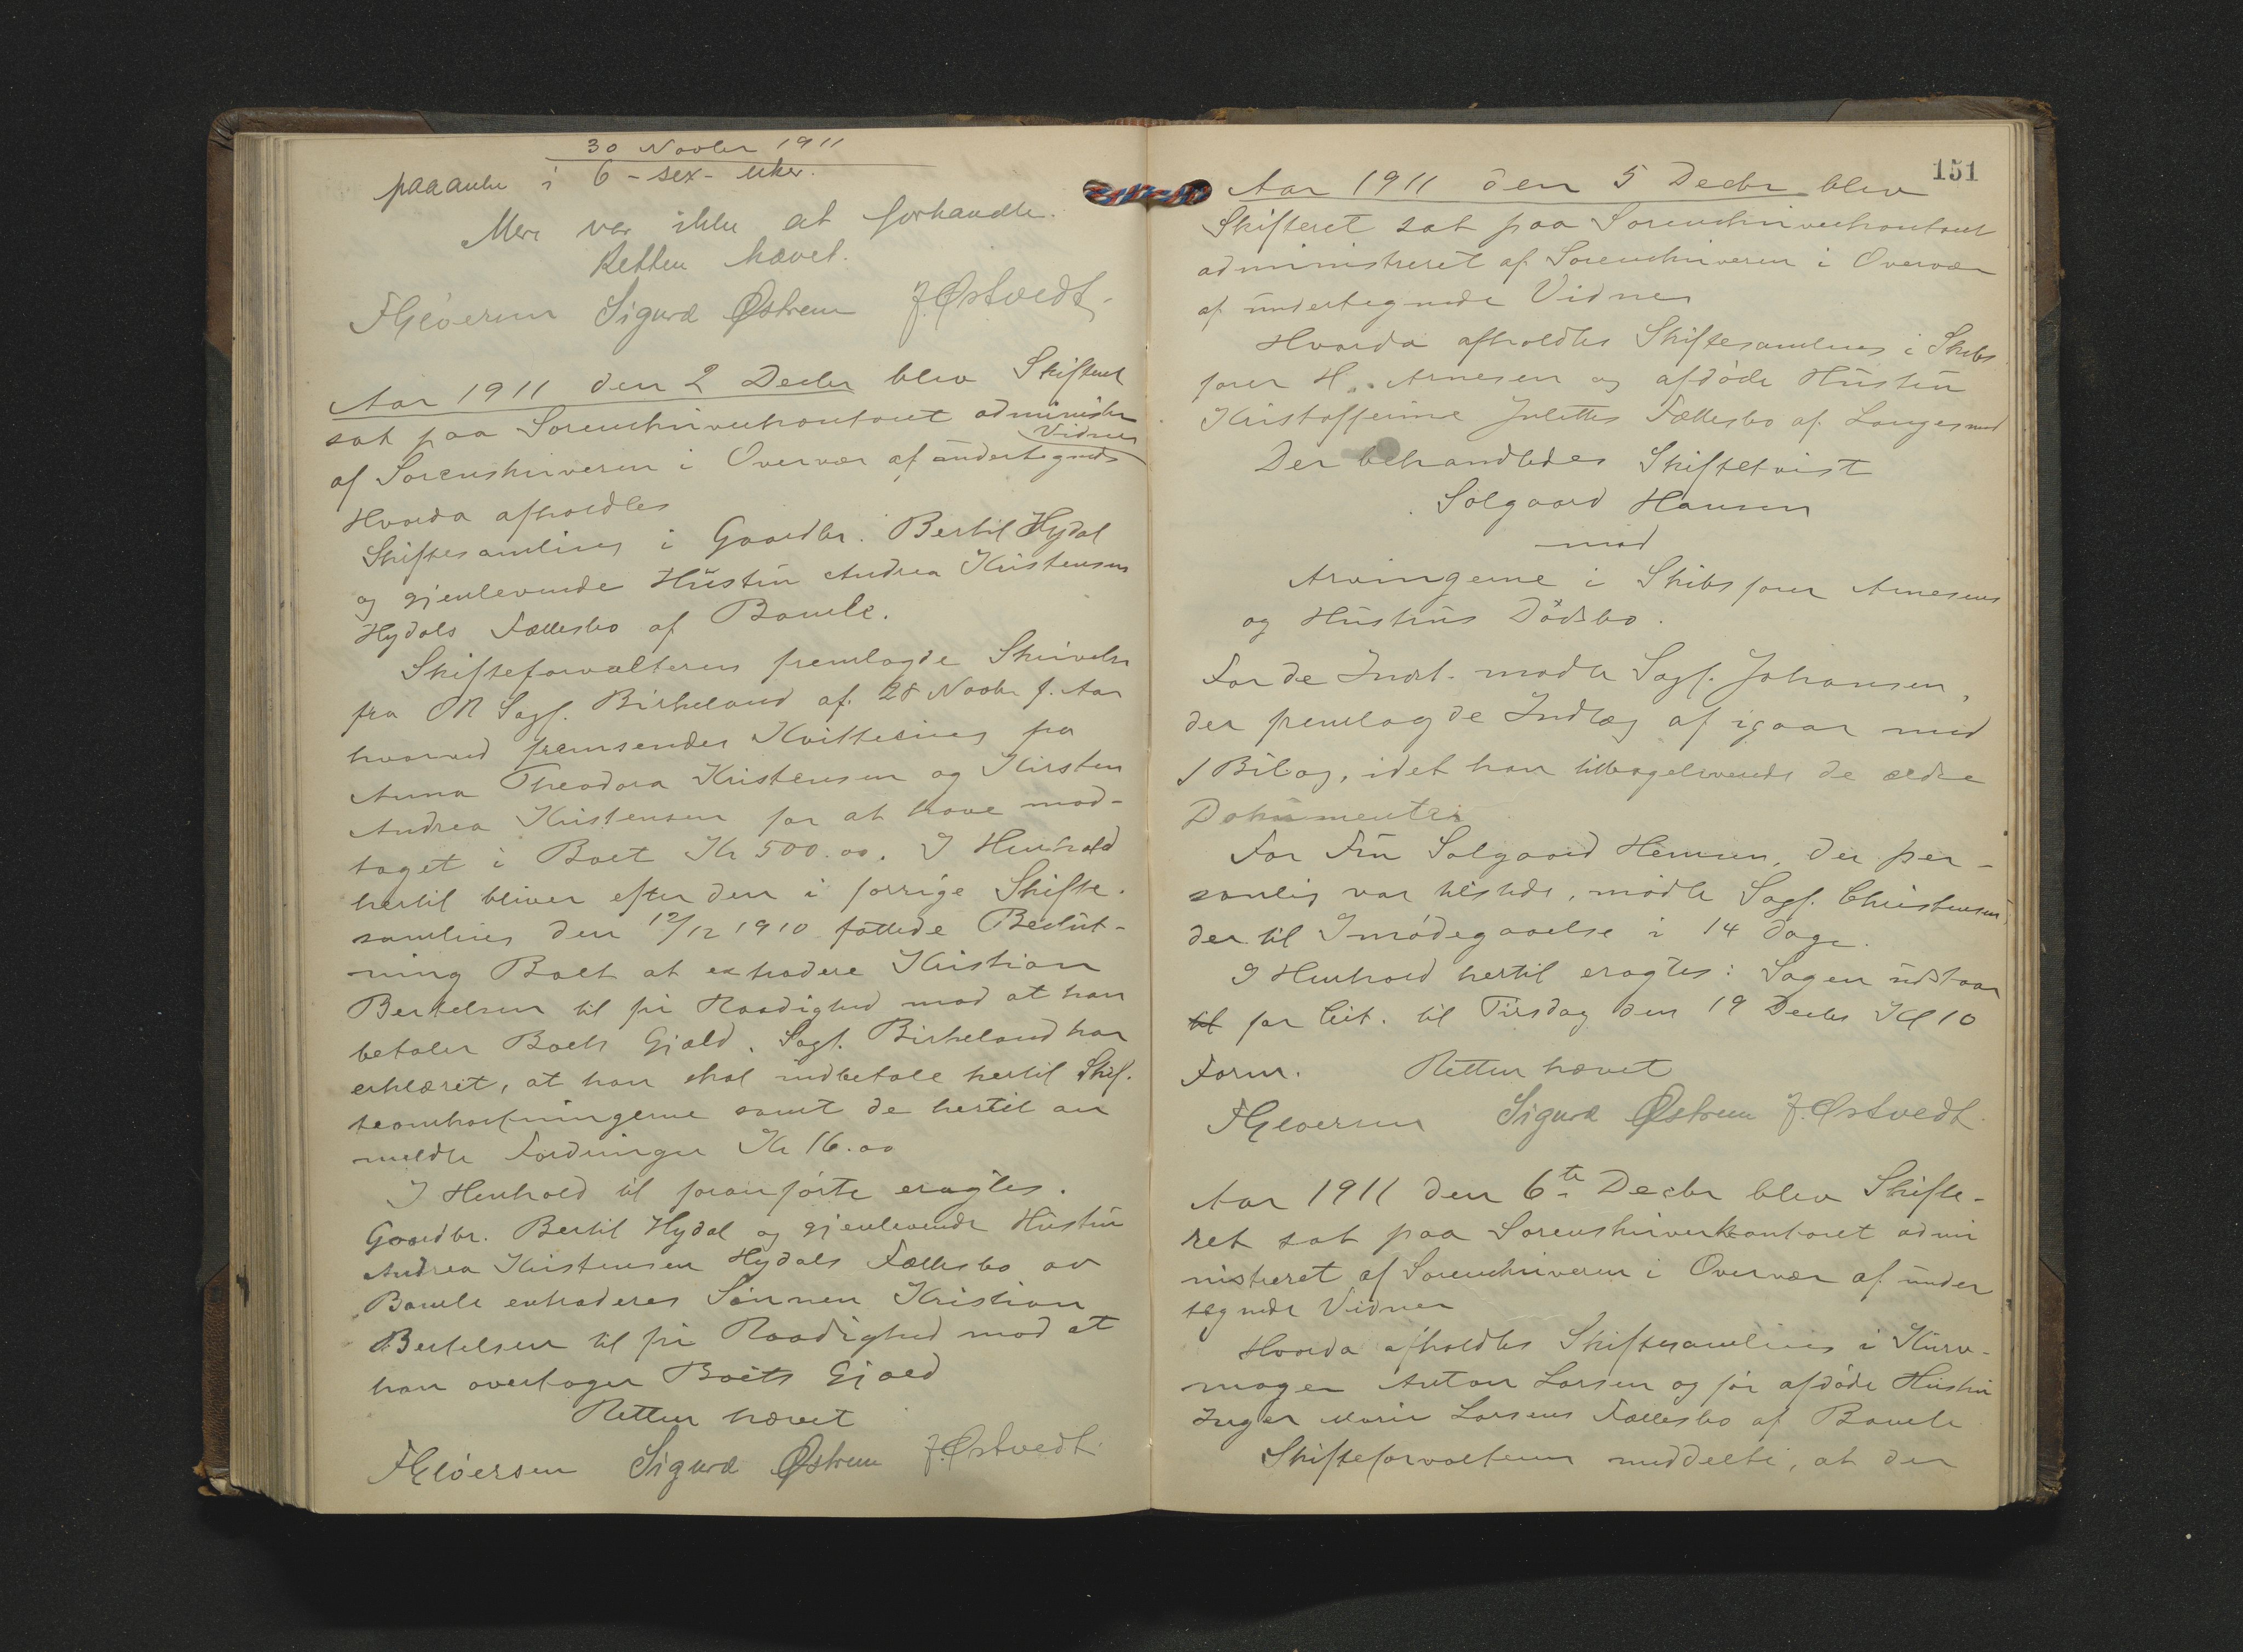 30 Novbr 1911
paaanke i 6 - sex - uker.
Mere var ikke at forhandle.
Retten hævet.
FGløersen Sigurd Østrem J. Østvedt
Aar 1911 den 2 Decbr blev Skifteret
sat paa Sorenskriverkontoret administr
Vidner
af Sorenskriveren i Overvær af undertegnede
Hvorda afholdtes
Skiftesamling i Gaardbr. Bertil Hydal
og gjenlevende Hustru Andrea Kristensen
Hydals Fællesbo af Bamle.
Skifteforvalteren fremlagde Skrivelse
fra O Sagf. Birkeland af 28 Novbr f. Aar
hvorved fremsendes Kvittering fra
Anna Theodora Kristensen og Kirsten
Andrea Kristensen for at have mod-
taget i Boet Kr 500.00. I Henhold
hertil bliver efter den i forrige Skifte-
samling den 12/12 1910 fattede Beslut-
ning Boet at extradere Kristian
Bertelsen til fri Raadighed mod at han
betaler Boets Gjæld. Sagf. Birkeland har
erklæret, at han skal indbetale hertil Skif-
teomkostningerne samt de hertil an
meldte Fordringer Kr 16.00
I Henhold til foranførte eragtes.
Gaardbr. Bertil Hydal og gjenlevende Hustru
Andrea Kristensen Hydals Fællesbo av
Bamle extraderes Sønnen Kristian
Bertelsen til fri Raadighed mod at
han overtager Boets Gjæld
Retten hævet
FGløersen Sigurd Østrem J. Østvedt
151
Aar 1911 den 5 Decbr blev
Skifteret sat paa Sorenskriverkontoret
administreret af Sorenskriveren i Overvær
af undertegnede Vidner
Hvorda afholdtes Skiftesamling i Skibs
fører H. Arnesen og afdøde Hustru
Kristofferine Julettes Fællesbo af Langesund
Der behandledes Skiftetvist
Solgaard Hansen
mod
Arvingerne i Skibsfører Arnesens
og Hustrus Dødsbo.
For de Indst. mødte Sagf. Johansen,
der fremlagde Indlæg af igaar med
1 Bilag, idet han tilbageleverede de ældre
Dokumenter
For Fru Solgaard Hansen, der per-
sonlig var tilstede, mødte Sagf. Christensen,
der til Imødegaaelse i 14 Dage.
I Henhold hertil eragtes: Sagen udstaar
til for Cit. til Tirsdag den 19 Decbr Kl 10
Form. Retten hævet
FGløersen Sigurd Østrem J. Østvedt
Aar 1911 den 6te Decbr blev Skifte-
ret sat paa Sorenskriverkontoret admi
nistreret af Sorenskriveren i Overvær af under
tegnede Vidner
Hvorda afholdtes Skiftesamling i Kurv-
mager Anton Larsen og før afdøde Hustru
Inger Marie Larsens Fællesbo af Bamle
Skifteforvalteren meddelte, at der